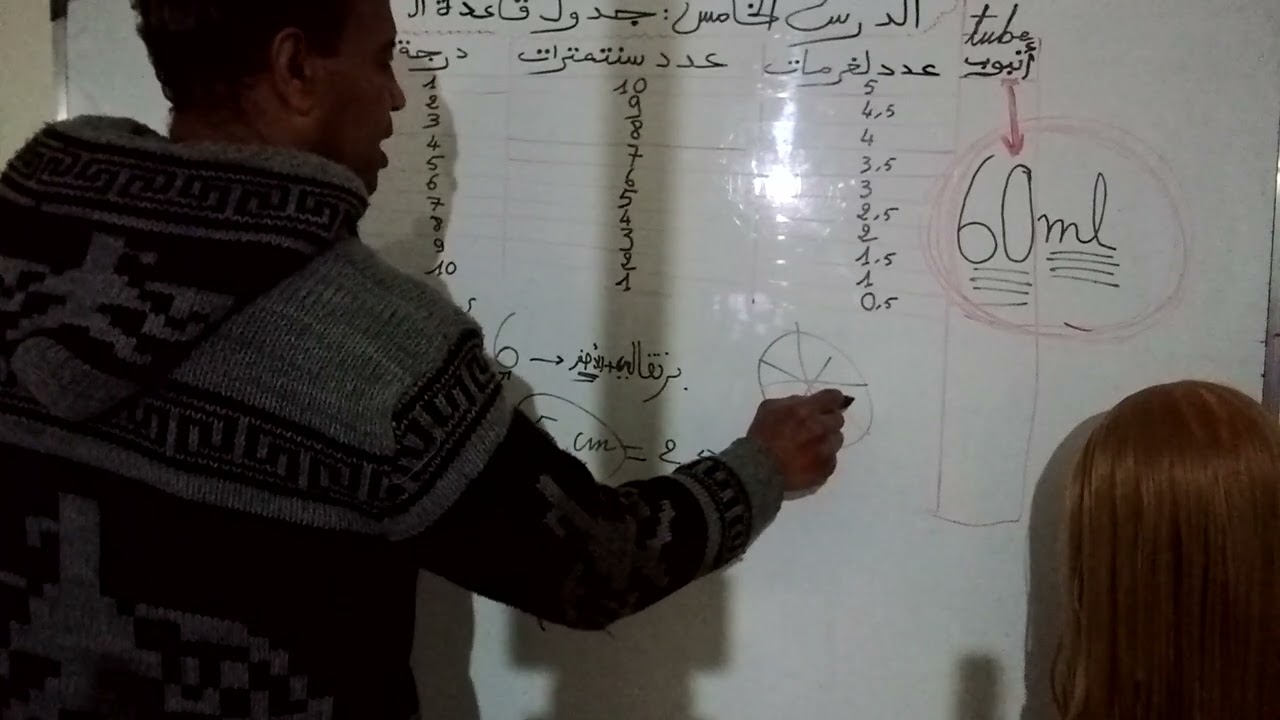 الدرس الخامس: جدول قاعدة ال
tube
أنبوب
درجة عدد سنتمترات عدد لغرمات
1 10 5
2 9 4,5
3 8 4
4 7 3,5
5 6 3
6 5 2,5
7 4 2
8 3 1,5
9 2 1
10 1 0,5
60ml
6 → برتقالي
cm = 2